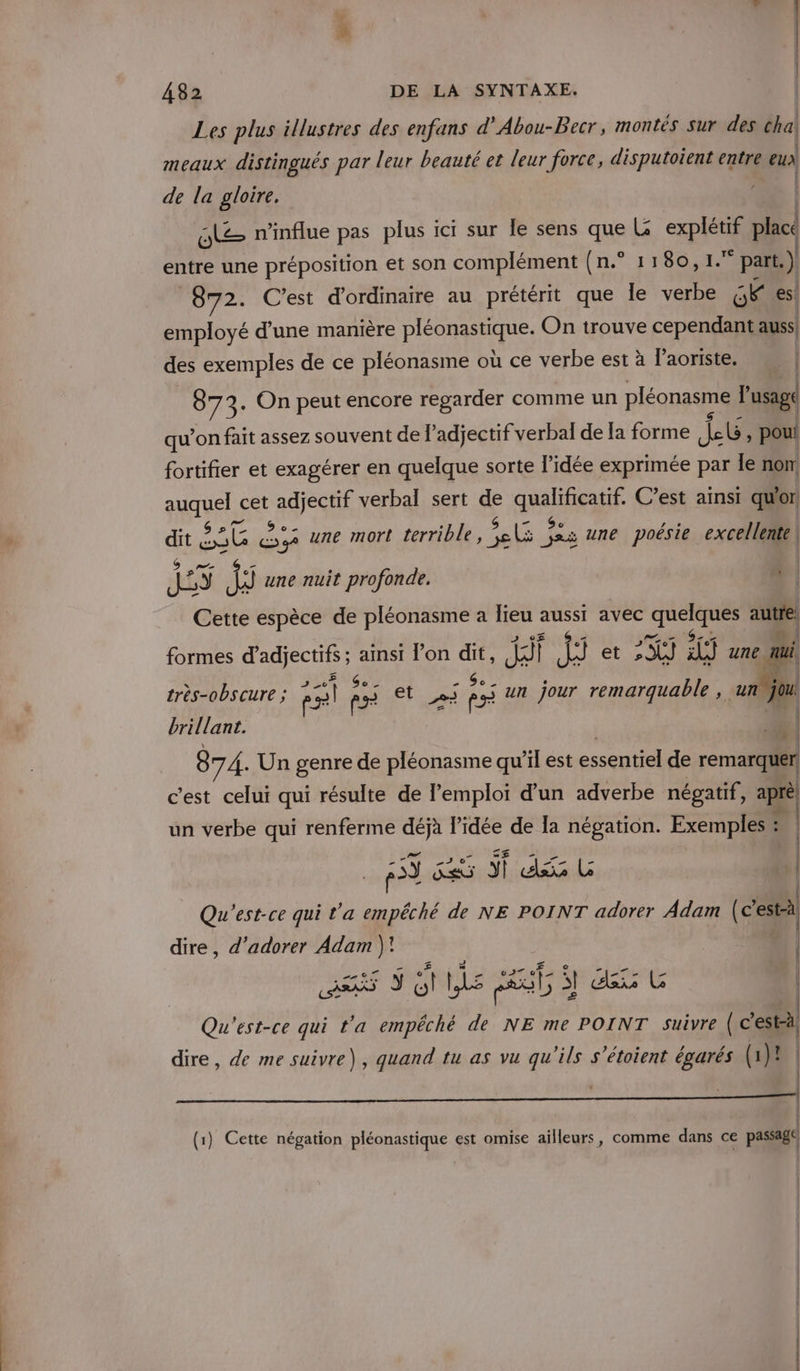 482 DE LA SYNTAXE.
Les plus illustres des enfans d'Abou-Becr, montés sur des cha
meaux distingués par leur beauté et leur force, disputoient entre eux
de la gloire.
كَانَ n'influe pas plus ici sur le sens que مَا explétif placé
entre une préposition et son complément (n.° 1180, 1.re part.)
872. C'est d'ordinaire au prétérit que le verbe كَانَ es
employé d'une manière pléonastique. On trouve cependant auss
des exemples de ce pléonasme où ce verbe est à l'aoriste.
873. On peut encore regarder comme un pléonasme l'usage
qu'on fait assez souvent de l'adjectif verbal de la forme فَاعِلٌ, pour
fortifier et exagérer en quelque sorte l'idée exprimée par le nom
auquel cet adjectif verbal sert de qualificatif. C'est ainsi qu'on
dit مَوْتٌ مَائِتٌ une mort terrible, شِعْرٌ شَاعِرٌ une poésie excellente
لَيْلٌ لَائِلٌ une nuit profonde.
Cette espèce de pléonasme a lieu aussi avec quelques autre
formes d'adjectifs; ainsi l'on dit, لَيْلٌ أَلْيَلُ et لَيْلَةٌ لَيْلَاءُ une nui
très-obscure; يَوْمٌ أَيْوَمُ et يَوْمٌ يَمٍ un jour remarquable, un jou
brillant.
874. Un genre de pléonasme qu'il est essentiel de remarquer
c'est celui qui résulte de l'emploi d'un adverbe négatif, aprè
un verbe qui renferme déjà l'idée de la négation. Exemples :
مَا مَنَعَكَ أَلَّا تَسْجُدَ لِآدَمَ
Qu'est-ce qui t'a empéché de NE POINT adorer Adam (c'est-à
dire, d'adorer Adam)!
مَا مَنَعَكَ إِذْ رَأَيْتَهُمْ ضَلُّوا أَنْ لَا تَتَّبِعَنِى
Qu'est-ce qui t'a empéché de NE me POINT suivre (c'est-à
dire, de me suivre), quand tu as vu qu'ils s'étoient égarés (1)!
(1) Cette négation pléonastique est omise ailleurs, comme dans ce passage